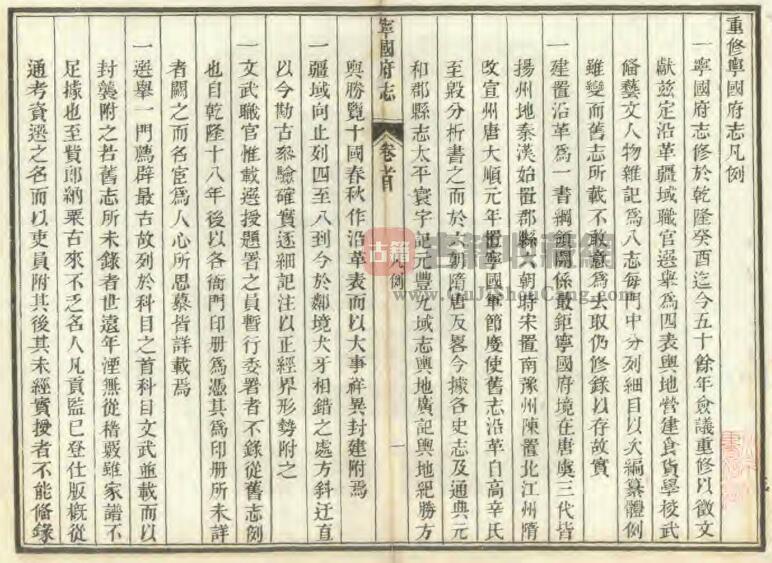 重修寧國府志凡例
一寧國府志修於乾隆癸酉迄今五十餘年僉議重修以徵文
獻茲定沿革疆域職官選舉爲四表輿地營建食貨學校武
備藝文人物雜記爲八志每門中分列細目以次編纂體例
雖變而舊志所載不敢意爲去取仍修錄以存故實
一建置沿革爲一書綱領關係最鉅寧國府境在唐虞三代皆
揚州地秦漢始置郡縣 朝時宋置南豫州陳置北江州隋
改宣州唐大順元年置寧國軍節度使舊志沿革自高辛氏
至殷分析書之而於六朝隋唐反畧今據各史志及通典元
和郡縣志太平寰宇記元豐九域志輿地廣記輿地紀勝方
寧國府志
卷首
凡例
一
輿勝覽十國春秋作沿革表而以大事祥異封建附焉
一疆域向止列四至八到今於鄰境犬牙相錯之處方斜迂直
以今勘古參驗確實逐細記注以正經界形勢附之
一文武職官惟載選授題署之員暫行委署者不錄從舊志例
也自乾隆十八年後以各衙門印册爲憑其爲印册所未詳
者闕之而名宦爲人心所思慕皆詳載焉
一選舉一門薦辟最古故列於科目之首科目文武並載而以
封襲附之若舊志所未錄者世遠年湮無從稽覈雖家譜不
足據也至貲郎納粟古來不乏名人凡貢監已登仕版概從
通考資選之名而以吏員附其後其未經實授者不能備錄
古籍
古籍收藏網
GuJiShouCang.com